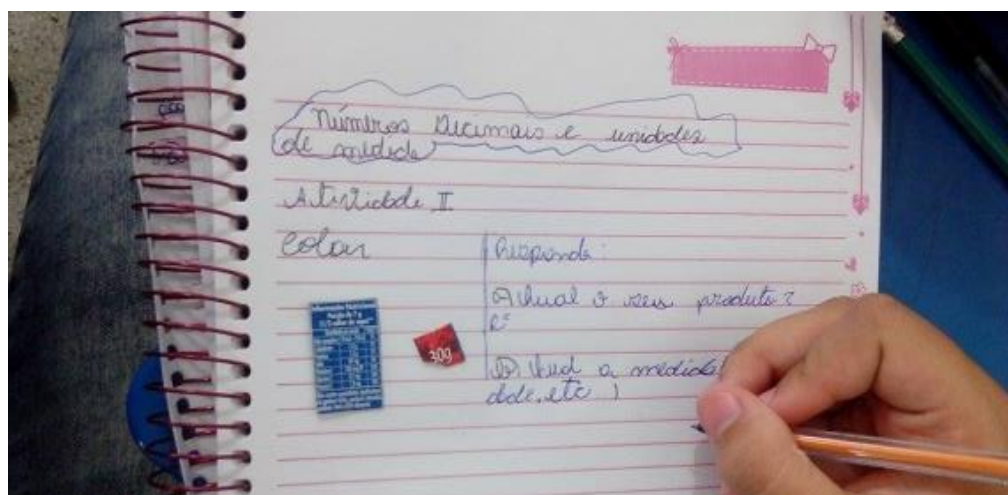 Números Decimais e unidades
de medida
Atividade II
Colar
Responda:
a) Qual o seu produto?
R=
b) Qual a medida
dde. etc )
30g